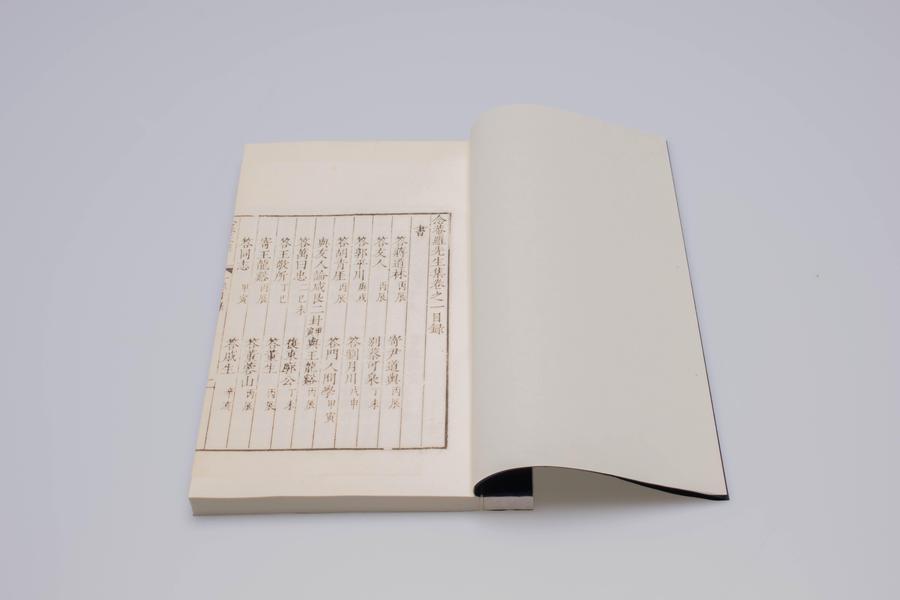 念菴羅先生集卷之一目錄
書
答蔣道林 丙辰 寄尹道輿 丙辰
答友人 丙辰 別蔡可泉 丁未
答郭平川 庚戌 答劉月川 戊申
答胡青厓 丙辰 答門人問學 甲寅
與友人論咸艮二封 與王龍谿 丙辰
答萬曰忠二 己未 復東郭公 丁未
答王敬所 丁巳 答董生 丙辰
寄王龍谿 丙辰 答董蓉山 丙辰
答同志 甲寅 答戚生 辛亥